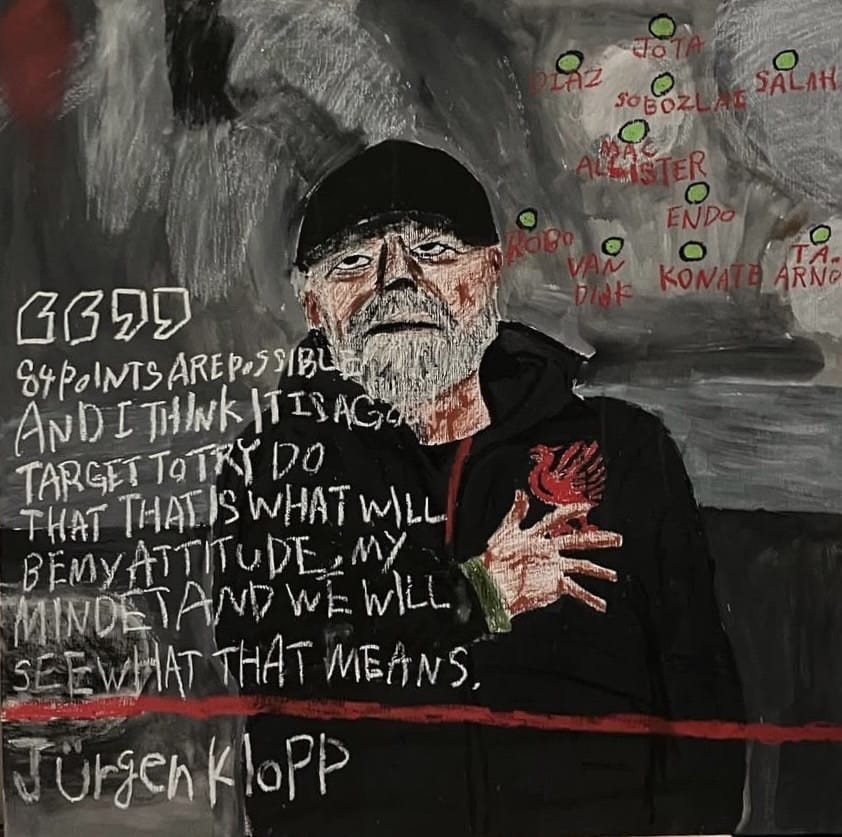 JOTA
DIAZ
SALAH
SOBOZLAI
MAC
ALLISTER
ENDO
ROBO
VAN
DIJK
KONATE
T.A.
ARNO
84 POINTS ARE POSSIBLE
AND I THINK IT IS A GO
TARGET TO TRY DO
THAT THAT IS WHAT WILL
BE MY ATTITUDE, MY
MINDET AND WE WILL
SEE WHAT THAT MEANS.
Jürgen Klopp